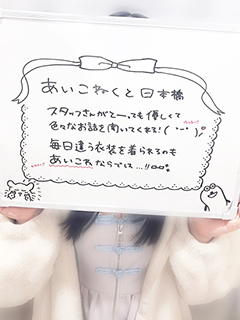 あいこねくと日本橋
スタッフさんがとーっても優しくて
色々なお話を聞いてくれる!
毎日違う衣装を着られるのも
あいこねならでは…!!